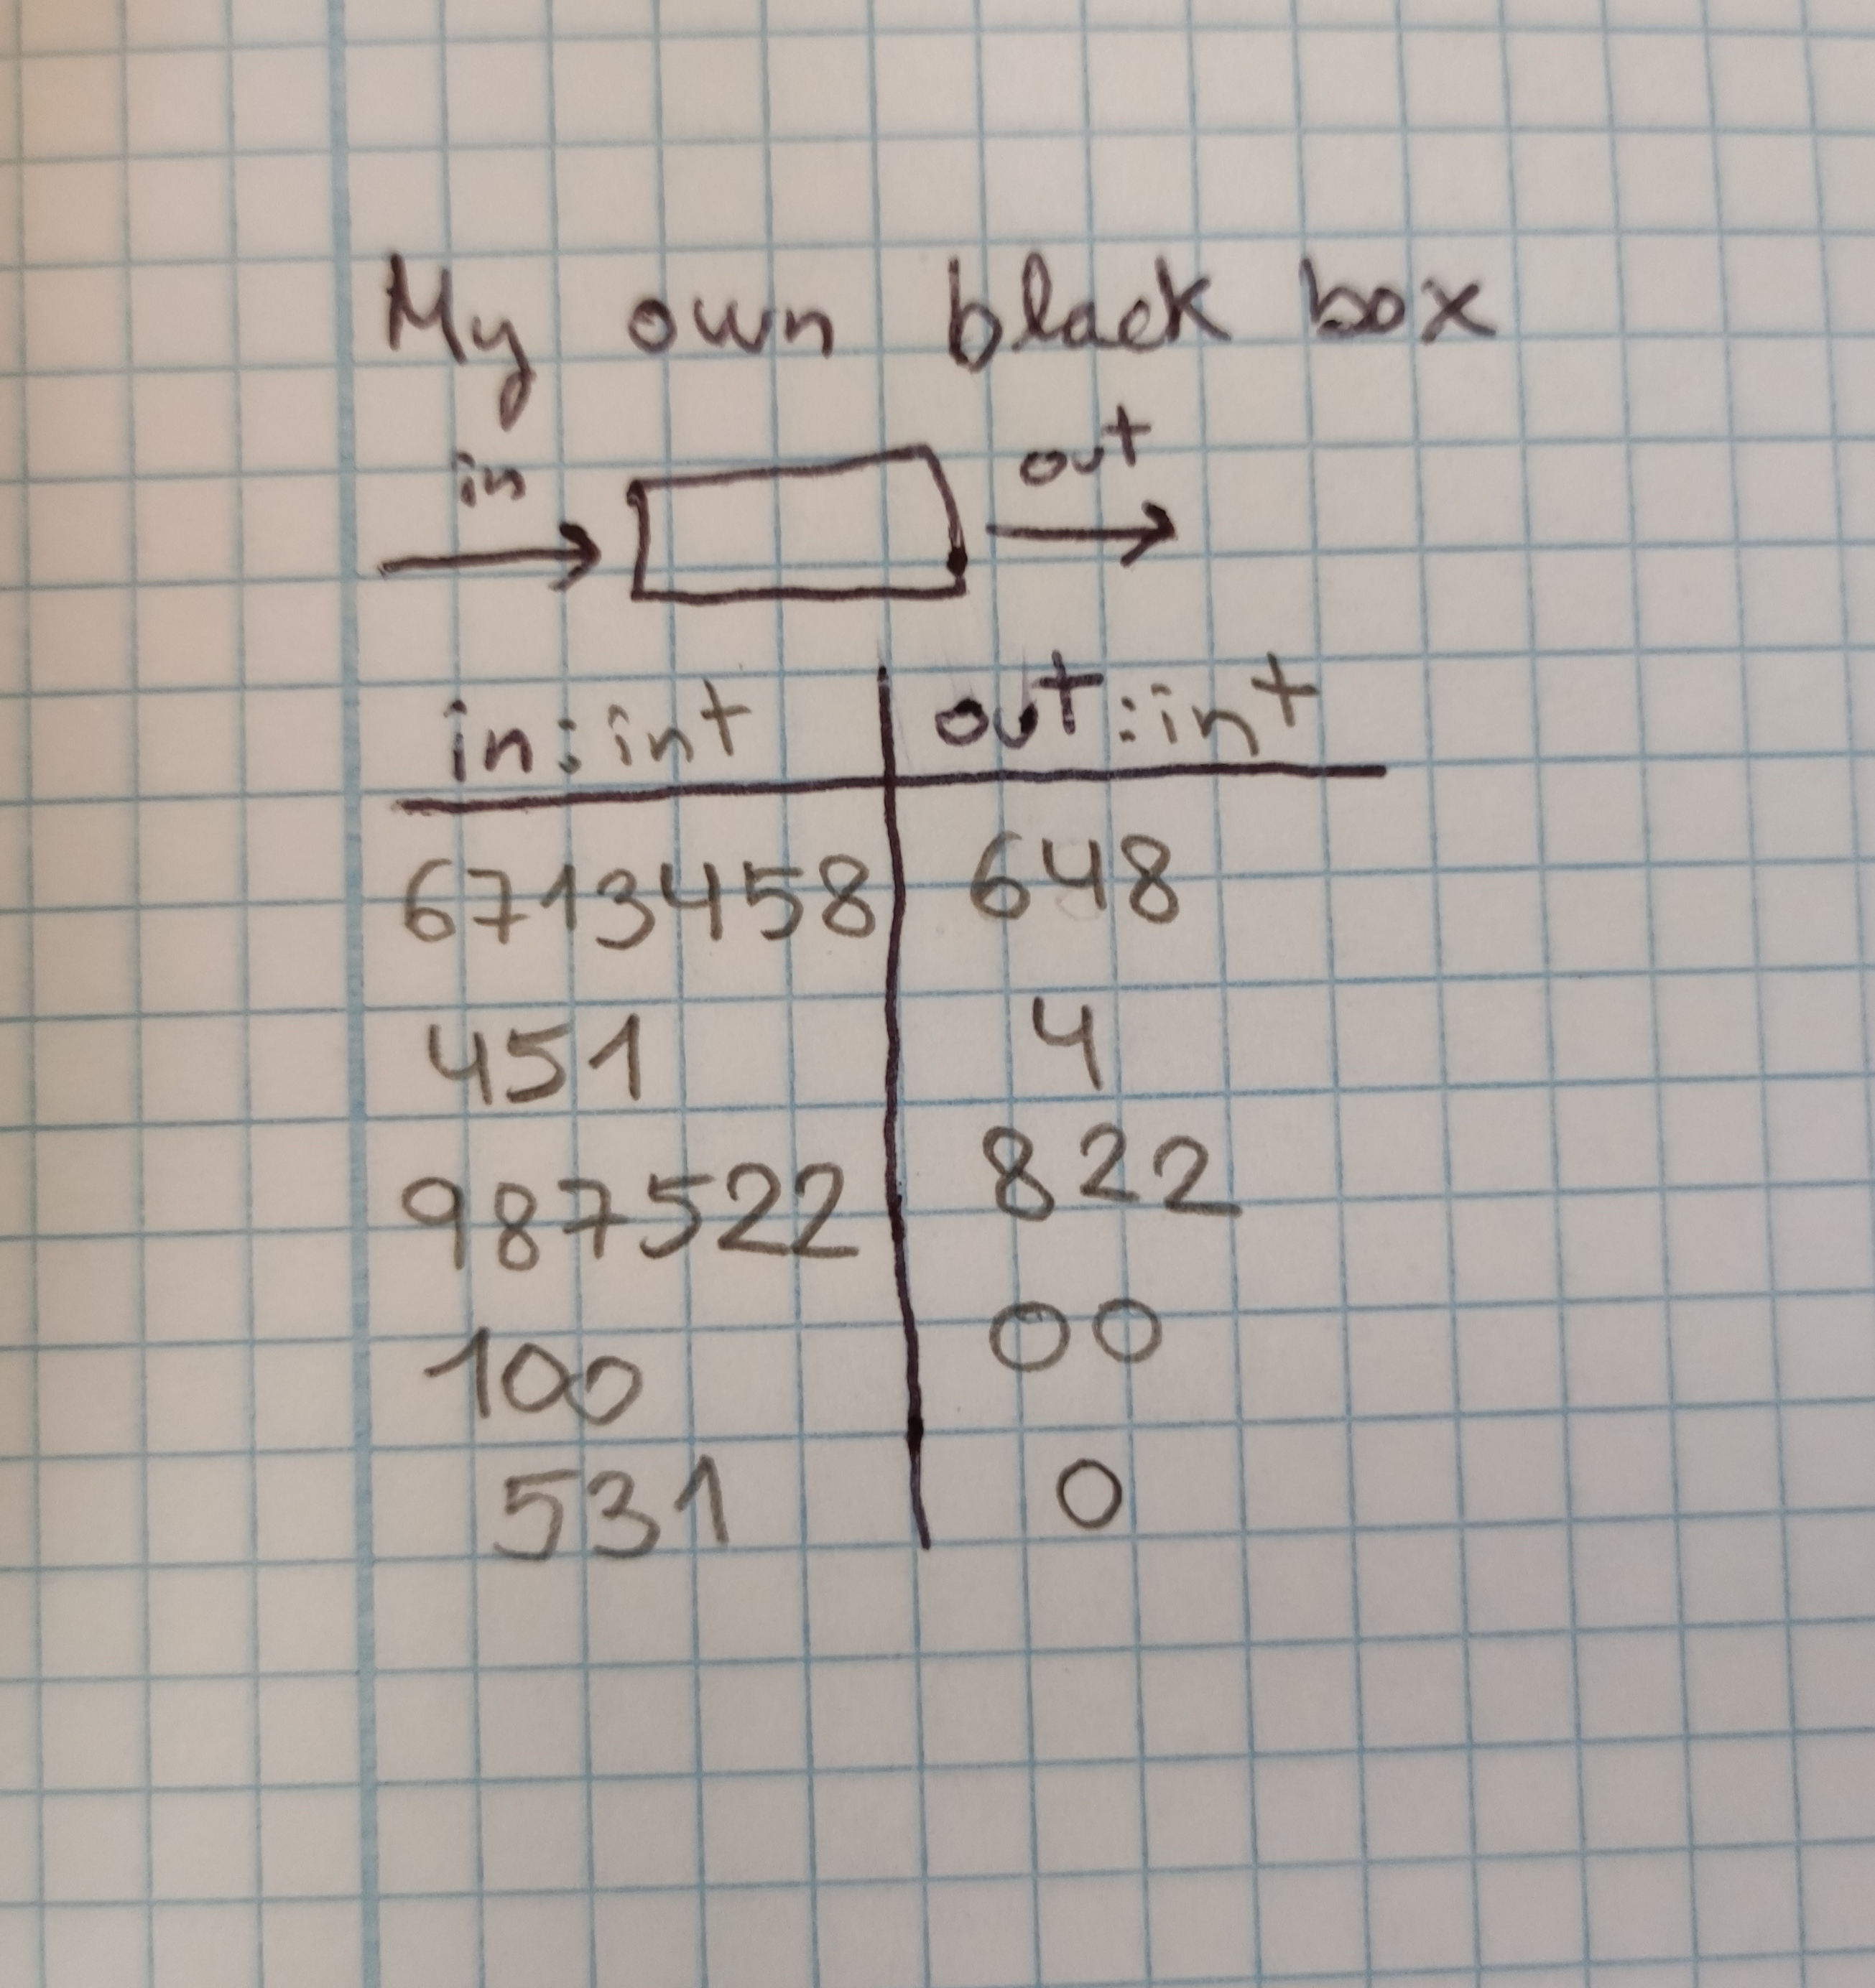 My own black box
in out
in:int out:int
6713458 648
451 4
987522 822
100 00
531 0